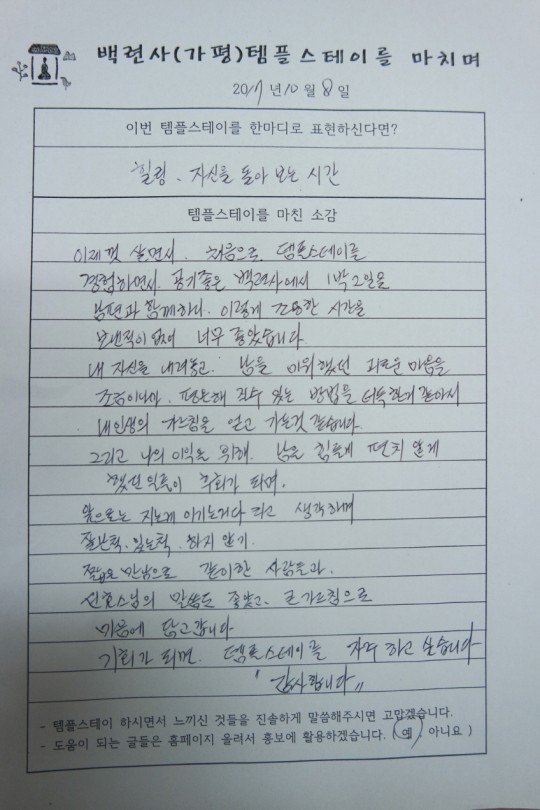 백련사(가평)템플스테이를 마치며
2017년 10월 8일
이번 템플스테이를 한마디로 표현하신다면?
힐링、자신를 돌아 보는 시간
템플스테이를 마친 소감
이제껏 살면서. 처음으로 템프스테이를
경험하면서. 공기좋은 백련사에서 1박2일을
남편과 함께하니. 이렇게 조용한 시간을
보낸적이 없어 너무 좋았습니다.
내 자신을 내려놓고. 남을 미워했던 괴로운 마음을
조금이나마. 편온해 질수 있는 방법을 터득한거 같아서
내인생의 가르침을 얻고 가는것 같습니다.
그리고 나의 이익을 위해. 남을 힘들게 편치 않게
했던 일들이 후회가 되며.
앞으로는 지는게 이기는거다 라고 생각하며
잘난척. 있는척. 하지 않기.
짧은 만남으로 같이한 사람들과.
스님의 말씀도 좋았고. 큰가르침으로
마음에 담고갑니다
기회가 되면. 템프스테이를 자주 하고 싶습니다
"감사합니다"
- 템플스테이 하시면서 느끼신 것들을 진솔하게 말씀해주시면 고맙겠습니다.
- 도움이 되는 글들은 홈페이지 올려서 홍보에 활용하겠습니다. ( 예, 아니요 )